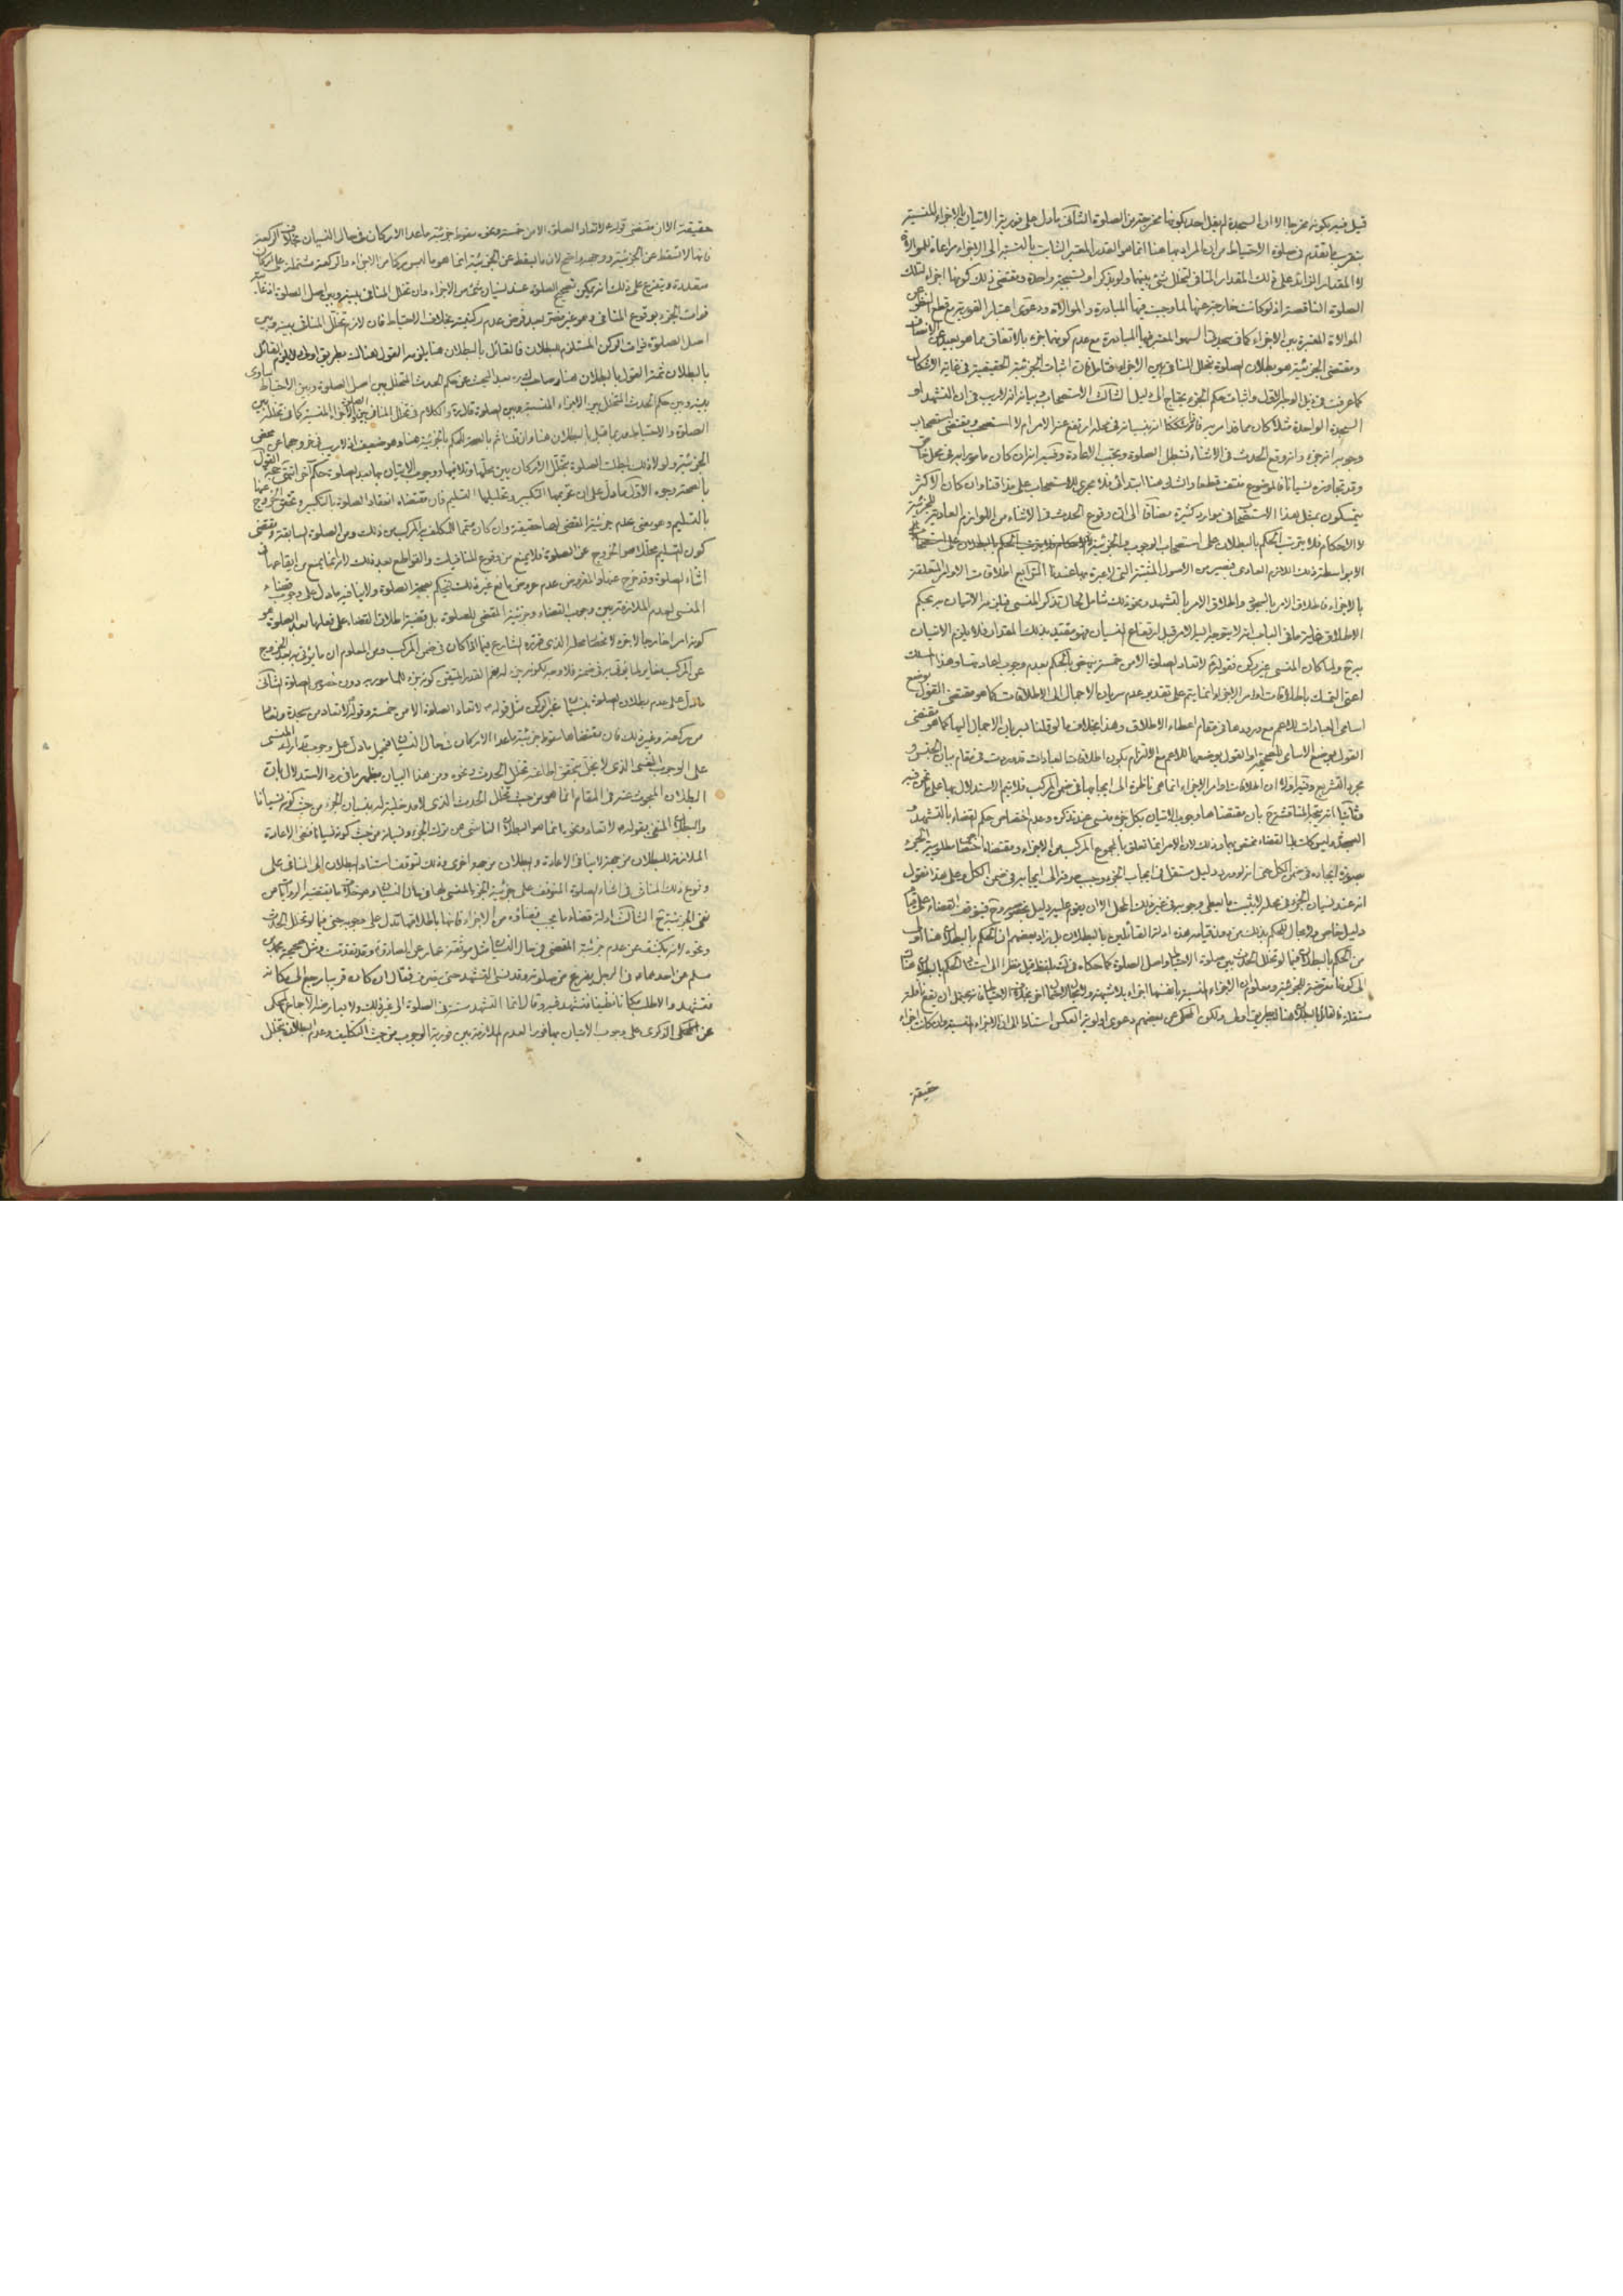 قيل فيه بكونه مخرجا الا ان السجدة لم يقل احد بكونها مخرجة من الصلوة الثانى ما دل على فورية الاتيان بالاجزاء المنسية
بتقريب ما تقدم فى صلوة الاحتياط من ان المراد بها هنا انما هو القدر المعتبر الثابت بالنسبة الى الاجزاء مراعاة للموالاة
لا المقدار الزائد على ذلك المقدار المنافى لتخلل شئ بينهما ولو بذكر او تسبيحة واحدة ومقتضى ذلك كونها اجزاء لتلك
الصلوة الناقصة اذ لو كانت خارجة عنها لما وجبت فيها المبادرة والموالاة ودعوى اعتبار الفورية مع قطع النظر عن
الموالاة المعتبرة بين الاجزاء كما فى سجدتى السهو المعتبر فيها المبادرة مع عدم كونهما جزء بالاتفاق مما هو بعيد عن الانصاف
ومقتضى الجزئية هو بطلان الصلوة بتخلل المنافى بين الاجزاء فتامل فان اثبات الجزئية الحقيقية فى غاية الاشكال
كما عرفت فى ذيل الوجه الاول واثبات حكم الجزء يحتاج الى دليل الثالث الاستصحاب بيانه انه لا ريب فى ان التشهد او
السجدة الواحدة مثلا كان مامورا به فاذا شككنا انه بنسيانه فى محله ارتفع عنه الامر ام لا استصحب ومقتضى استصحاب
وجوبه انه جزء وانه وقع الحدث فى الاثناء فتبطل الصلوة ويجب الاعادة وفيه انه ان كان مامورا به فى محل خاص
وقد تجاوزه نسيانا فالموضوع منتف قطعا والشك هنا ابتدائى فلا يجرى الاستصحاب على مذاقنا وان كان الاكثر
يتمسكون بمثل هذا الاستصحاب فى موارد كثيرة مضافا الى ان وقوع الحدث فى الاثناء من اللوازم العادية للجزئية
لا الاحكام فلا يترتب الحكم بالبطلان على استصحاب الوجوب والجزئية
الا بواسطة ذلك اللازم العادى فيصير من الاصول المثبتة التى لا عبرة بها عندنا الرابع اطلاقات الاوامر المتعلقة
بالاجزاء فاطلاق الامر بالسجود واطلاق الامر بالتشهد ونحو ذلك شامل لحال تذكر المنسى فيلزم الاتيان به بحكم
الاطلاق غاية ما فى الباب انه لا يتوجه اليه الامر قبل ارتفاع النسيان فهو مقيد بذلك المقدار فلا يلزم الاتيان
به ح ولما كان المنسى غير ركن فقوله لا تعاد الصلوة الا من خمسة ينهض بالحكم بعدم وجوب اعادتها وهذا المسلك
اعنى التمسك باطلاقات اوامر الاجزاء انما يتم على تقدير عدم سريان الاجمال الى الاطلاقات كما هو مقتضى القول بوضع
اسامى العبادات للاعم مع ورودها فى مقام اعطاء الاطلاق وهذا بخلاف ما لو قلنا بسريان الاجمال اليها كما هو مقتضى
القول بوضع الاسامى للصحيح او القول بوضعها للاعم مع الالتزام بكون اطلاقات العبادات قد وردت فى مقام بيان الجنس و
مجرد التشريع وفيه اولا ان اطلاقات اوامر الاجزاء انما هى ناظرة الى ايجابها فى ضمن المركب فلا يتم الاستدلال بها على ما نحن فيه
وثانيا انه يتجه المناقشة ح بان مقتضاها وجوب الاتيان بكل جزء منسى عند تذكره وعدم اختصاص حكم القضاء بالتشهد و
السجدة
بصورة ايجاده فى ضمن الكل حتى انه لو ورد دليل مستقل فى ايجاب الجزء وجب صرفه الى ايجابه فى ضمن الكل وعلى هذا فنقول
انه عند نسيان الجزء فى محله لا يثبت بالنسيان وجوبه فى غير ذلك المحل الا ان يقوم عليه دليل بخصوصه وح فيتوقف القضاء على
دليل خاص ولا مجال للحكم بذلك من دونه هذه ادلة القائلين بالبطلان بل زاد بعضهم ان الحكم بالبطلان هنا اولى
من الحكم بالبطلان فيما لو تخلل الحدث بين صلوة الاحتياط واصل الصلوة كما حكاه
الى كونها معرضة للجزئية ومعلوم ان الاجزاء المنسية بانفسها اجزاء بلا شبهة
مستقلة فالقائل بالبطلان هناك بطريق اولى ولكن المحكى عن بعضهم دعوى اولوية العكس استنادا الى ان الاجزاء المنسية وان كانت اجزاء
حقيقة
حقيقة الا ان مقتضى قوله لا تعاد الصلوة الا من خمسة ونحوه سقوط جزئية ما عدا الاركان فى حال النسيان بخلاف الركعة
فانها لا تسقط عن الجزئية ووجهه واضح لان ما يسقط عن الجزئية انما هو ما ليس ركنا من الاجزاء والركعة مشتملة على اركان
متعددة ويتفرع على ذلك انه يمكن تصحيح الصلوة عند نسيان شئ من الاجزاء وان تخلل المنافى بينه وبين اصل الصلوة اذ غايته
فوات الجزء بوقوع المنافى وهو غير مضر بعد فرض عدم ركنيته بخلاف الاحتياط فان لازم تخلل المنافى بينه وبين
اصل الصلوة فوات الركن المستلزم للبطلان فالقائل بالبطلان هنا يلزمه القول هناك بطريق اولى
بالبطلان ثمة القول بالبطلان هنا
بينه وبين حكم الحدث المتخلل بين الاجزاء المنسية وبين الصلوة قال والكلام فى تخلل المنافى بين الصلوة والاجزاء المنسية كما فى تخلله بين
الصلوة والاحتياط وربما قيل بالبطلان هنا وان قلنا ثم بالصحة للحكم بالجزئية هنا وهو ضعيف اذ لا ريب فى خروجها عن محض
الجزئية ولولا ذلك لبطلت الصلوة بتخلل الاركان بين محلها وتلافيها ووجوب الاتيان بها بعد الصلوة حكم اخر انتهى حجة القول
بالصحة وجوه الاول ما دل على ان تحريمها التكبير وتحليلها التسليم فان مقتضاه انعقاد الصلوة بالتكبير وتحقق الخروج عنها
بالتسليم وهو معنى عدم جزئية المقضى لها حقيقة وان كان متمما للتكليف المركب من ذلك ومن الصلوة السابقة ومقتضى
كون التسليم محللا هو الخروج عن الصلوة فلا يمنع من وقوع المنافيات والقواطع بعد ذلك لانه انما يمنع من ايقاعها فى
اثناء الصلوة وقد خرج عنها والمفروض عدم عروض مانع غير ذلك فيحكم بصحة الصلوة ولا ينافيه ما دل على وجوب قضاء
المنسى لعدم الملازمة بين وجوب القضاء وجزئية المقضى للصلوة بل قضية اطلاق القضاء على فعلها بعد الصلوة هو
كونه امرا خارجا لا جزء لا محله الذى قرره الشارع فيه انما كان فى ضمن المركب ومن المعلوم ان ما يؤتى به بعد الخروج
عن المركب مغاير لما يؤتى به فى ضمنه فلا وجه لكونه جزء له نعم القدر المتيقن كونه جزء للمامور به دون خصوص الصلوة الثانى
ما دل على عدم بطلان الصلوة بنسيان غير الركن مثل قوله لا تعاد الصلوة الا من خمسة وقوله لا تعاد من سجدة وتعاد
من ركعة وغير ذلك فان مقتضاها سقوط جزئية ما عدا الاركان فى حال النسيان فيحمل ما دل على وجوب تدارك المنسى
على الوجوب النفسى الذى لا يخل بتحقق اطاعته تخلل الحدث ونحوه ومن هذا البيان يظهر ما فى رد الاستدلال بان
البطلان المبحوث عنه فى المقام انما هو من حيث تخلل الحدث الذى لا مدخلية له بنسيان الجزء من حيث كونه نسيانا
والبطلان المنفى بقوله لا تعاد ونحوه انما هو البطلان الناشى من ترك الجزء ونسيانه من حيث كونه نسيانا فنفى الاعادة
الملازمة للبطلان من جهة لا ينافى الاعادة والبطلان من جهة اخرى وذلك لتوقف استناد البطلان الى المنافى على
وقوع ذلك المنافى فى اثناء الصلوة المتوقف على جزئية الجزء المنسى لها فى حال النسيان وهو خلاف ما يقتضيه الروايات من
نفى الجزئية ح الثالث ادلة قضاء ما يجب قضاؤه من الاجزاء فانها باطلاقها تدل على وجوبه حتى فيما لو تخلل الحدث
ونحوه لانه يكشف عن عدم جزئية المقضى فى حال النسيان مثل موثقة عمار عن الصادق وقد تقدمت ومثل صحيحة محمد بن
مسلم عن احدهما فى الرجل يفرغ من صلوته وقد نسى التشهد حتى ينصرف فقال ان كان قريبا رجع الى مكانه
فتشهد والا طلب مكانا نظيفا فتشهد فيه وقال انما التشهد سنة فى الصلوة الى غير ذلك ولا يعارضه الاجماع المحكى
عن الذكرى على وجوب الاتيان بها فورا لعدم الملازمة بين فورية الوجوب من حيث التكليف وعدم البطلان بتخلل